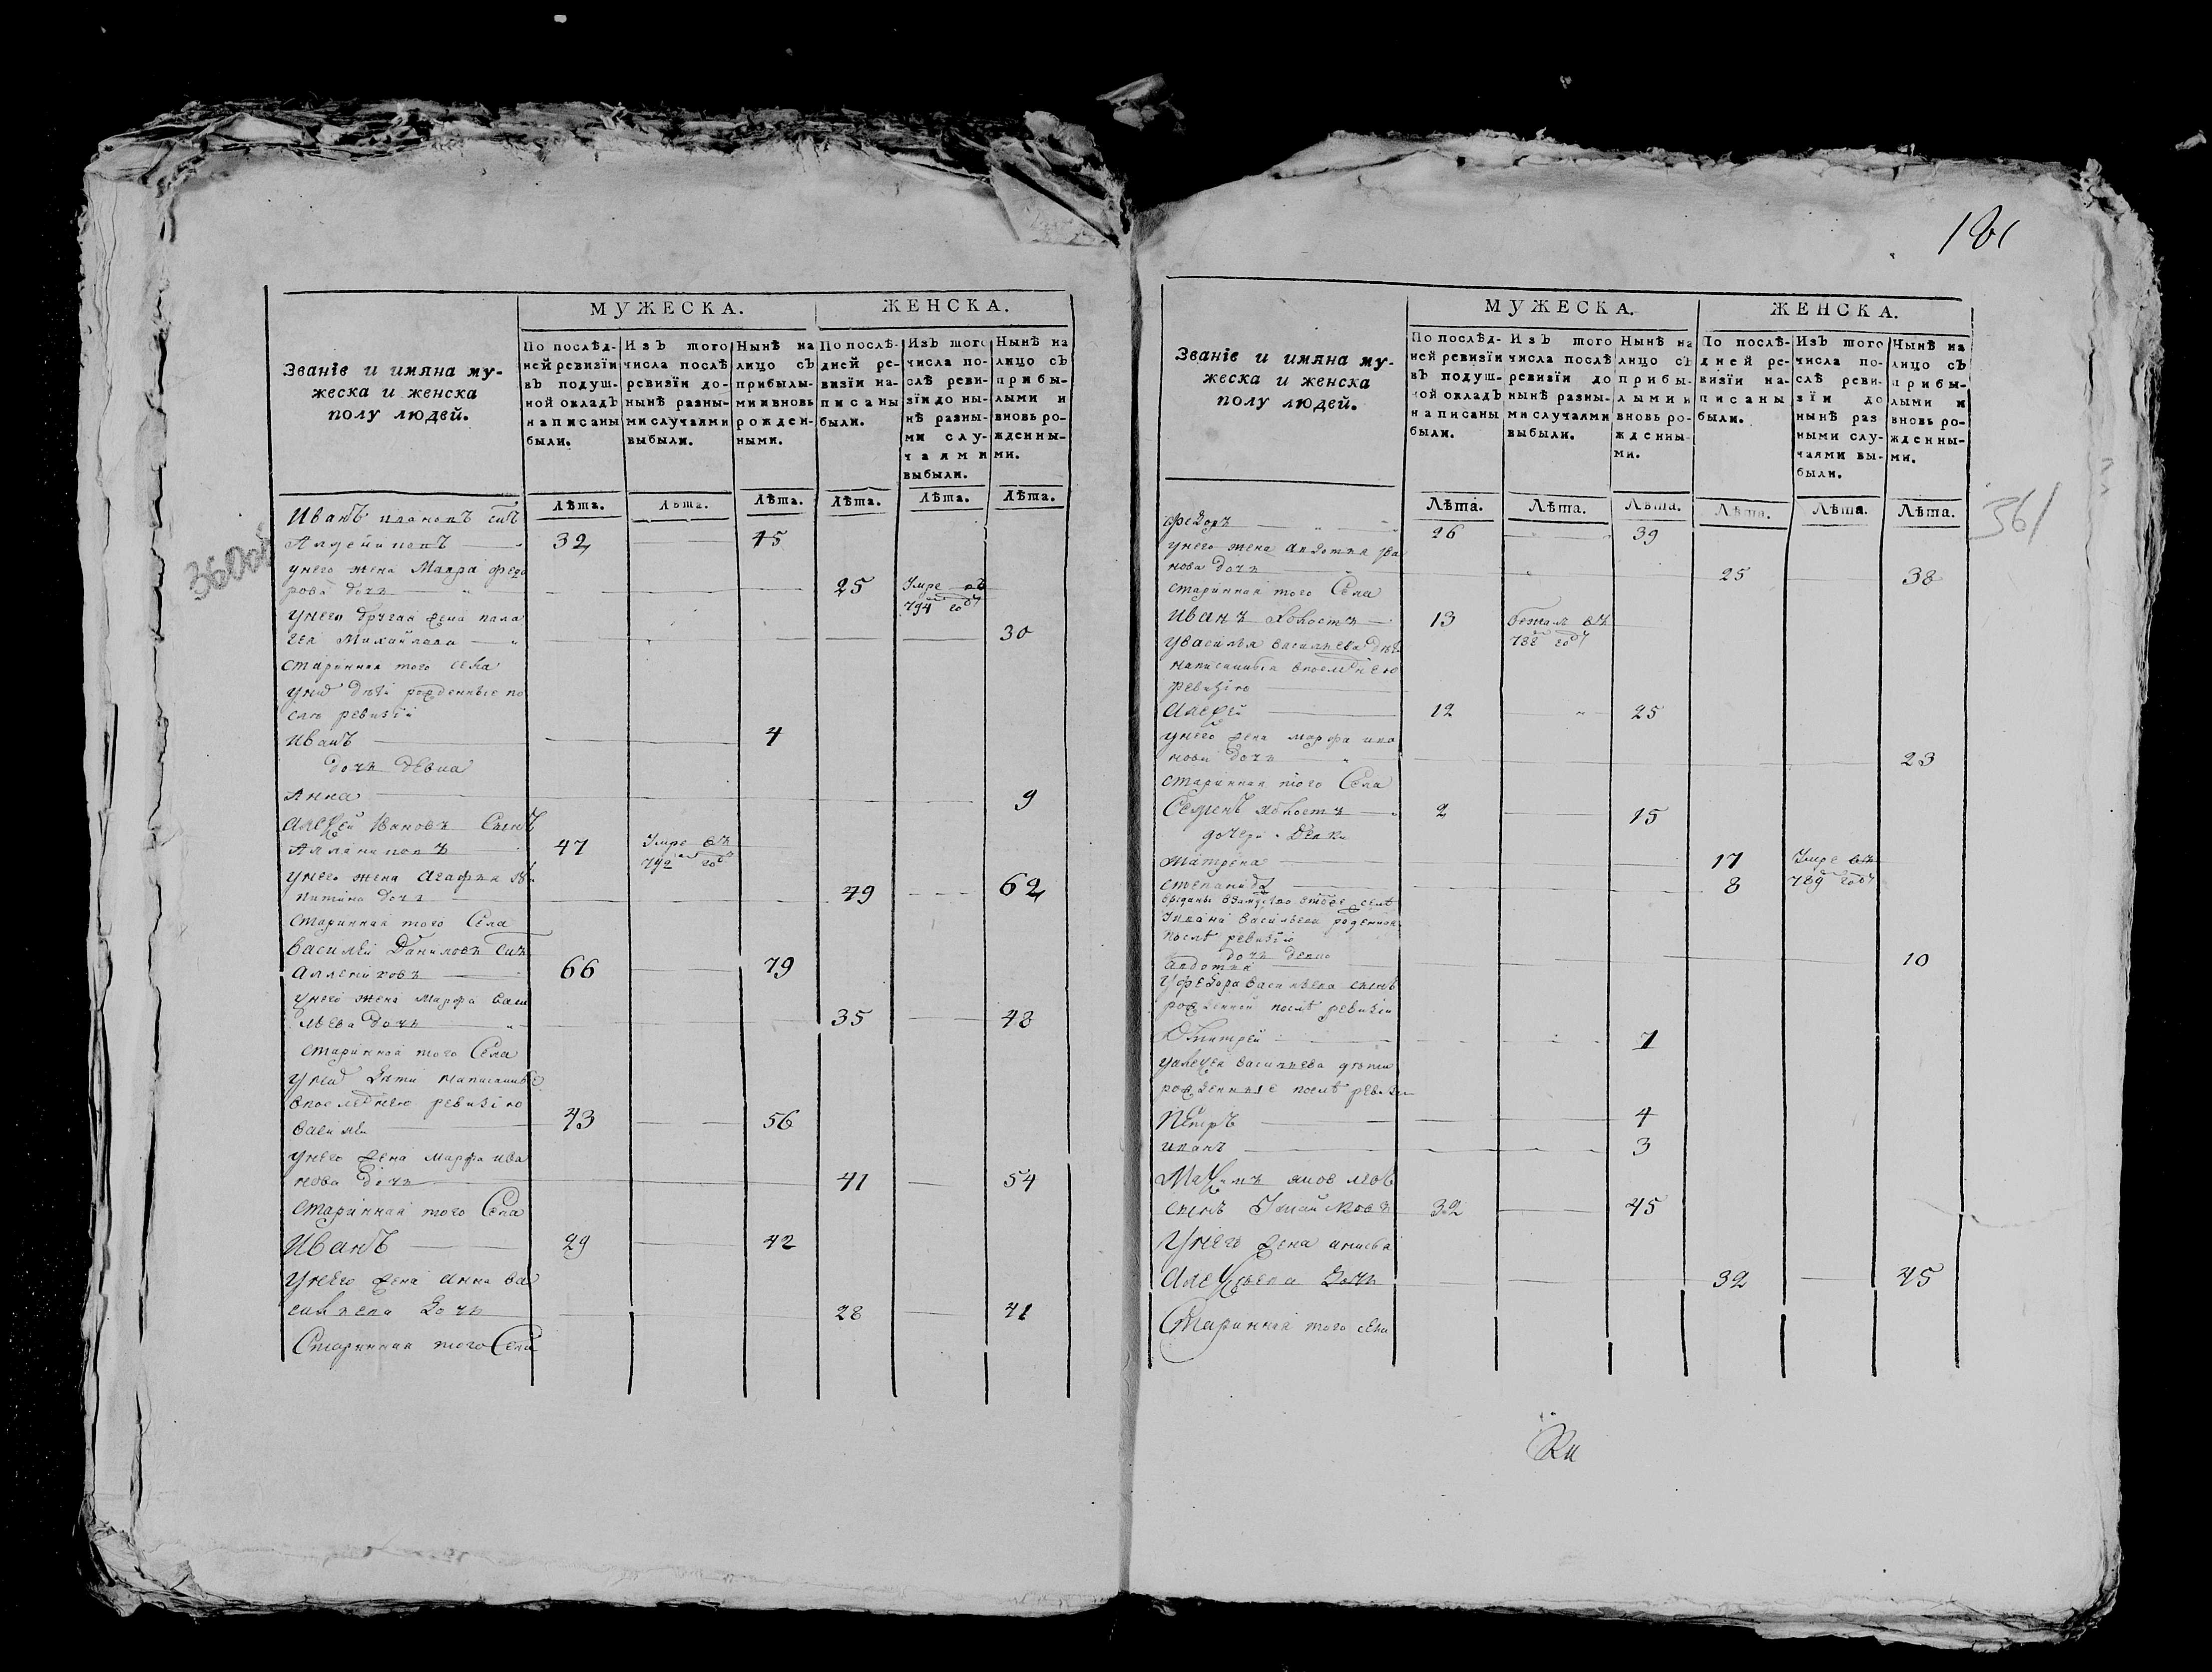 181
361
МУЖЕСКА.
ЖЕНСКА.
Званїе и имяна му-
жеска и женска
полу людей.
По послѣд-
ней ревизїи
въ подуш-
ной окладъ
написаны
были.
Изъ того
числа послѣ
ревизїи до-
нынѣ разны-
ми случаями
выбыли.
Нынѣ на
лицо съ
прибылы-
ми и вновь
рожден-
ными.
По послѣ-
дней ре-
визїи на-
писаны
были.
Изъ того
числа по-
слѣ реви-
зїи до ны-
нѣ разны-
ми слу-
чаями
выбыли.
Нынѣ на
лицо съ
прибы-
лыми и
вновь ро-
жденны-
ми.
Лѣта. Лѣта. Лѣта. Лѣта. Лѣта. Лѣта.
Иванъ ивановъ сынъ
32 45
унего жена Мавра федо
рова дочь 25 Умре въ
794 году
унего другая жена пала
гея Михайлова 30
старинная того села
уних дети рожденные по
сле ревизїи
Иванъ 4
дочь девка
Анна 9
Алексей Ивановъ Сынъ
47 Умре въ
792 году
унего жена Агафья
дочь 49 62
старинная того Села
василей Даниловъ Сынъ
66 79
унего жена Марфа васи
льева дочь 35 48
старинная того Села
униx дети написанные
впоследнею ревизїю
василей 43 56
унего жена марфа ива
нова дочь 41 54
старинная того Села
Иванъ 29 42
унего жена анна ва
сильева дочь 28 41
Старинная того Села
МУЖЕСКА.
ЖЕНСКА.
Званїе и имяна му-
жеска и женска
полу людей.
По послѣд-
ней ревизїи
въ подуш-
ной окладъ
написаны
были.
Изъ того
числа послѣ
ревизїи до
нынѣ разны-
ми случаями
выбыли.
Нынѣ на
лицо съ
прибы-
лыми и
вновь ро-
жденны-
ми.
По послѣ-
дней ре-
визїи на-
писаны
были.
Изъ того
числа по-
слѣ реви-
зїи до
нынѣ раз
ными слу-
чаями вы-
были.
Нынѣ на
лицо съ
прибы-
лыми и
вновь ро-
жденны-
ми.
Лѣта. Лѣта. Лѣта. Лѣта. Лѣта. Лѣта.
федоръ 26 39
унего жена авдотья ива
нова дочь 25 38
старинная того Села
иванъ холостъ 13 бежал въ
782 году
увасилья васильева дети
написанныя впоследнею
ревизїю
алексей 12 25
унего жена марфа ива
нова дочь 23
старинная того Села
Семенъ холостъ 2 15
дочери девки
матрена 17 Умре въ
степанида 8 789 году
уивана васильева рожденная
после ревизїи
дочь девка
авдотья 10
уфедора васильева сынъ
рожденной после ревизїи
Дмитрей 7
уалексея васильева дети
рожденные после ревизїи
Петръ 4
иванъ 3
Максимъ
сынъ 32 45
Унего жена анисья
Алексеева дочь 32 45
Старинная того села